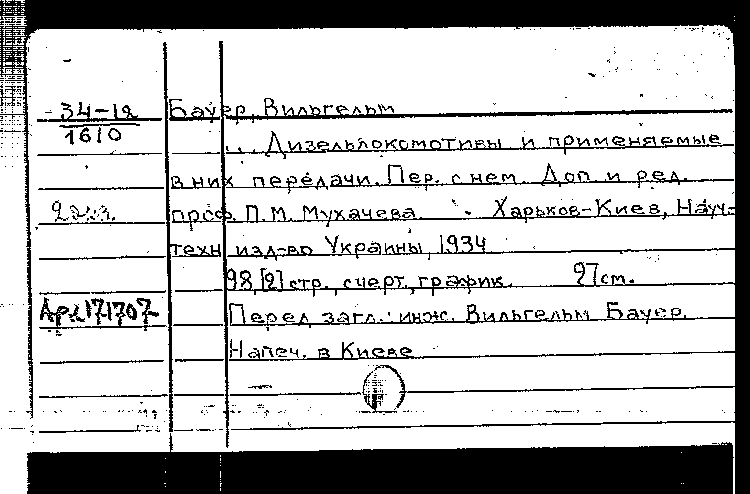 34-12
1610
Бауер, Вильгельм
... Дизельлокомотивы и применяемые
в них передачи. Пер. с нем. Доп. и ред.
2 экз.
проф. П.М. Мухачева. Харьков-Киев, Науч.-
техн. изд-во Украины, 1934
98, [2] стр., с черт., график. 27 см.
Ар 171707
Перед загл.: инж. Вильгельм Бауер.
Напеч. в Киеве